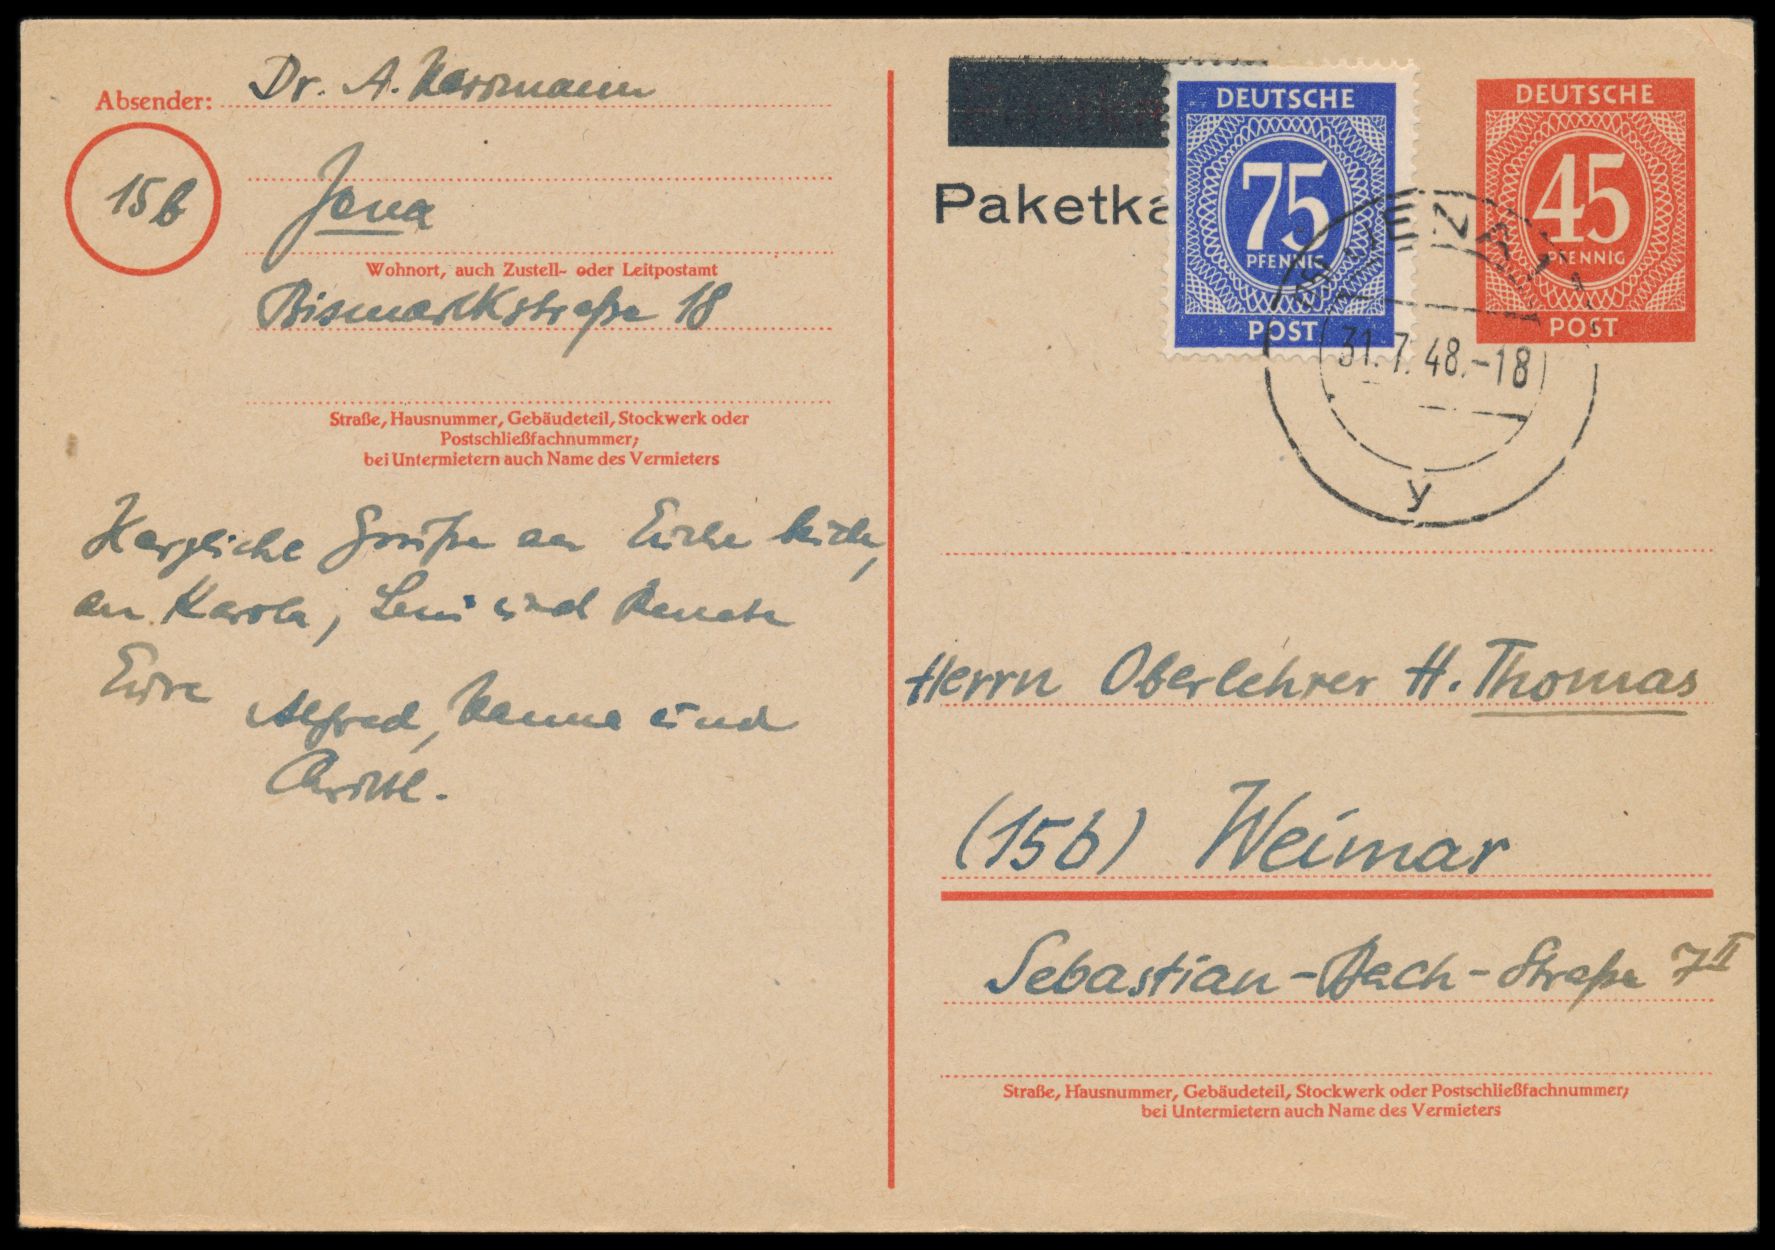 Absender: Dr. A. Herrmann
15b
Jena
Wohnort, auch Zustell- oder Leitpostamt
Bismarckstraße 18
Straße, Hausnummer, Gebäudeteil, Stockwerk oder
Postschließfachnummer;
bei Untermietern auch Name des Vermieters
Herzliche Grüße an Euch beide,
an Karola, Leni und Renate
Eure
Alfred, Hanna und
Christl.
Paketka
DEUTSCHE
75
PFENNIG
POST
DEUTSCHE
45
PFENNIG
POST
JENA
31.7.48.-18
y
Herrn Oberlehrer H. Thomas
(15b) Weimar
Sebastian-Bach-Straße 7II
Straße, Hausnummer, Gebäudeteil, Stockwerk oder Postschließfachnummer;
bei Untermietern auch Name des Vermieters